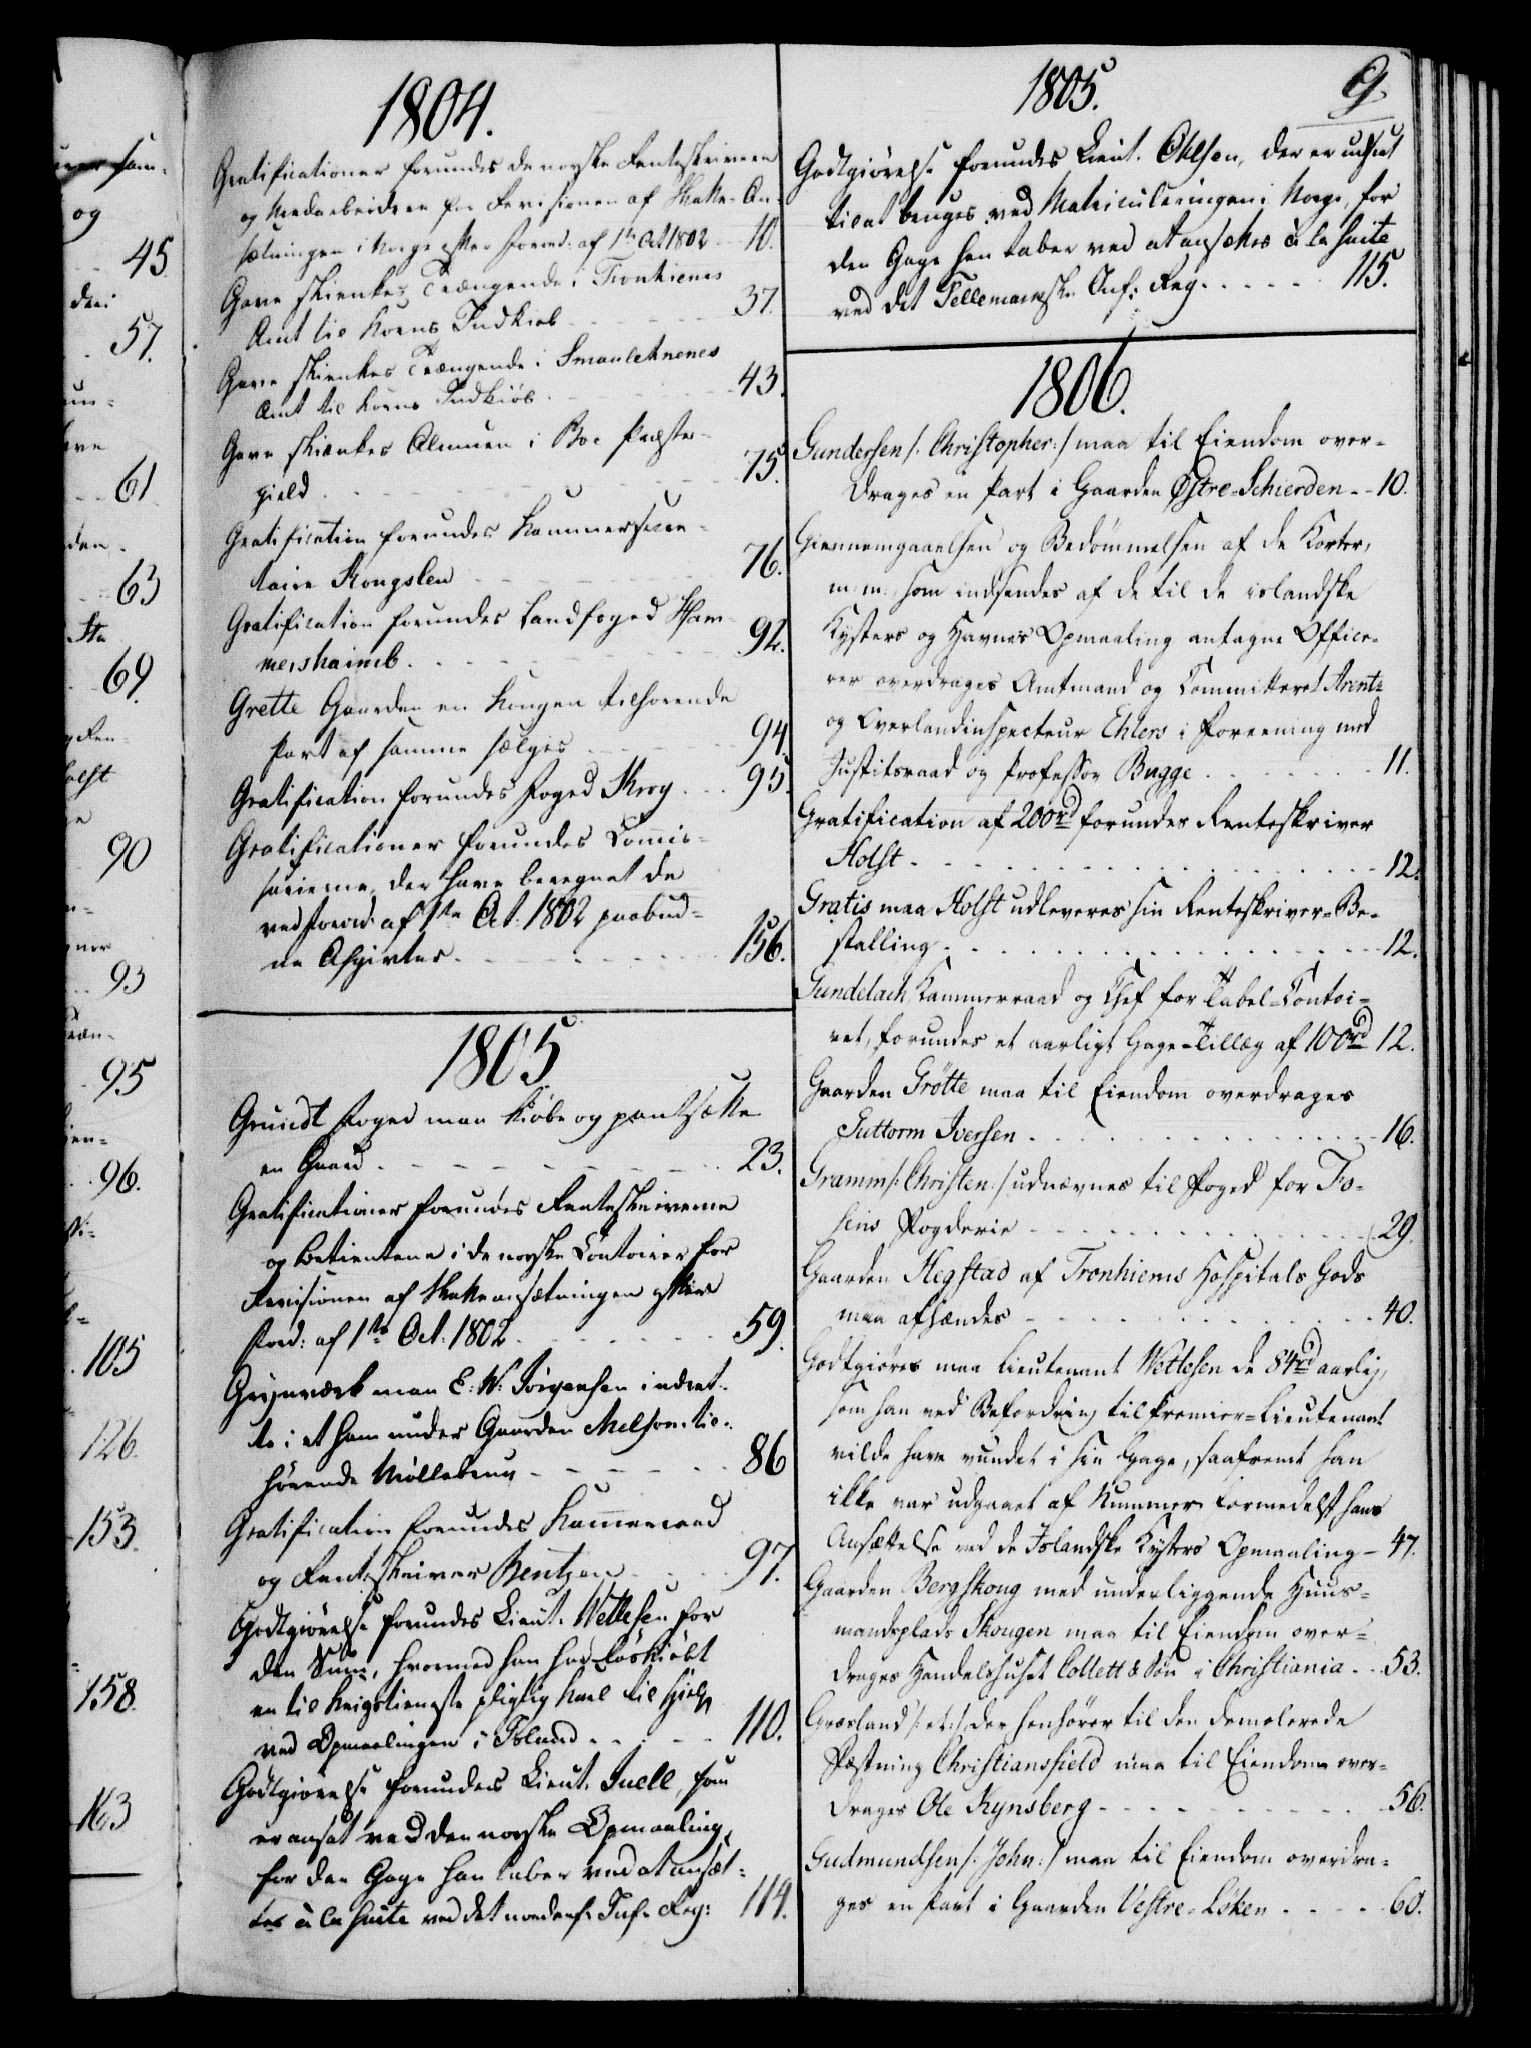 1804.
Gratificationer forundes de norske Renteskrivere
og Medarbeidere for Revisionen af Skatte-An-
sætningen i Norge efter Forord: af 1ste Oct 1802 10.
Gave skienkes Trængende i Tronhiems
Amt til Korns Indkiøb 37.
Gave skienkes Trængende i Smaalehnenes
Amt til Korns Indkiøb 43.
Gave skienkes Almuen i Boe Præste-
gield 75.
Gratification forundes Kammersecre-
taire Kongslew 76.
Gratification forundes Landfoged Ham-
mershaimb 92.
Grette Gaarden en Kongen tilhørende
Part af samme sælges 94.
Gratification forundes Foged Krog 95.
Gratificationer forundes Commis-
sairerne, der have beregnet de
ved Forord: af 1ste Oct. 1802 paabud-
ne Afgivter 156.
1805
Grundt Foged maa kiøbe og pantsætte
en Gaard 23.
Gratificationer forundes Renteskriverne
og Betientene i de norske Contoirer for
Revisionen af Skatteansætningen efter
Ford: af 1ste Oct. 1802 59.
Grynværk maa E: W: Jørgensen indret-
te i et ham under Gaarden Melsom til-
hørende Møllebrug 86
Gratification forundes Kammerraad
og Renteskriver Bentzen 97.
Godtgiørelse forundes Lieut. Wetlesen for
den Sum, hvormed han har løskiøbt
en til Krigstieneste pligtig Karl til Hielp
ved Opmaalingen i Island 110.
Godtgiørelse forundes Lieut. Juell, som
er ansat ved den norske Opmaaling,
for den Gage han taber ved at ansæt-
tes à la suite ved det nordenf. Inf. Reg: 114.
1805. G.
Godtgiørelse forundes Lieut. Ohlsen, der er udseet
til at bruges ved Matriculeringen i Norge, for
den Gage han taber ved at ansættes à la suite
ved det Tellemarkske Inf: Reg 115.
1806.
Gundersen /: Christopher :/ maa til Eiendom over-
drages en Part i Gaarden Østre-Schierden 10.
Giennemgaaelsen og Bedømmelsen af de Korter,
m: m: som indsendes af de til de islandske
Kysters og Havnes Opmaaling antagne Office-
rer overdrages Amtmand og Committeret Arentz
og Overlandinspecteur Ehlers i Foreening med
Justitsraad og Professor Bugge 11.
Gratification af 200rd forundes Renteskriver
Holst 12.
Gratis maa Holst udleveres sin Renteskriver-Be-
stalling 12.
Gundelach, Kammerraad og Chef for Tabel-Contoi-
ret, forundes et aarligt Gage-Tillæg af 100rd 12.
Gaarden Grøtte maa til Eiendom overdrages
Guttorm Iversen 16.
Gramm /: Christen :/ udnævnes til Foged for Fo-
sens Fogderie 29.
Gaarden Hegstad af Tronhiems Hospitals Gods
maa afhændes 40.
Godtgiøres maa Lieutenant Wetlesen de 84rd aarlig,
som han ved Befordring til Premier-Lieutenant
vilde have vundet i sin Gage, saafremt han
ikke var udgaaet af Nummer formedelst hans
Ansættelse ved de Islandske Kysters Opmaaling 47.
Gaarden Bergskoug med underliggende Huus-
mandsplads Skougen maa til Eiendom over-
drages Handelshuset Collett & Søn i Christiania 53.
Græsland /: et :/ der henhører til den demolerede
Fæstning Christiansfield maa til Eiendom over-
drages Ole Kynsberg 56.
Gudmundsen /: John :/ maa til Eiendom overdra-
ges en Part i Gaarden Vestre-Løken 60.
og
45.
57.
61
63
69.
90
93
95
96.
105
126.
153.
158.
163